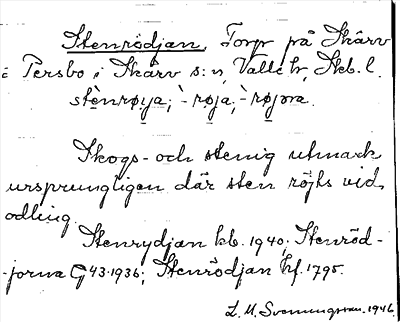 Stenrödjan, Torp på Skärv
i Persbo i Skärv s:n, Valle hr, Skb. l.
stènrøya; `-røja; `-røjɷa.
Skogs- och stenig utmark
ursprungligen där sten röjts vid
odling.
Stenrydjan kb. 1940; Stenröd-
-jorna G 43.1936; Stenrödjan hf. 1795.
L. M. Svenungsson. 1946.